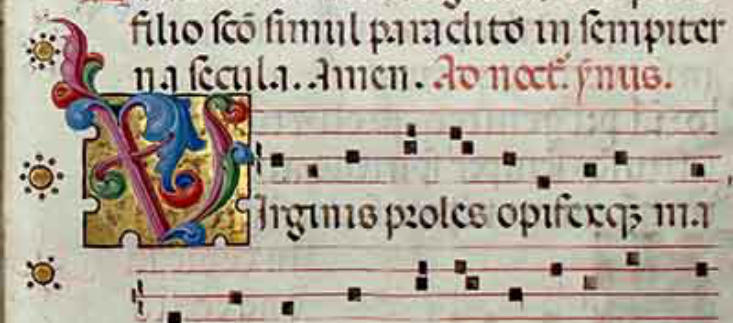 filio scō simul paraclito in sempiter
na secula. Amen. Ad noct. ẏnus.
VIrginis proles opifexqꝫ ma